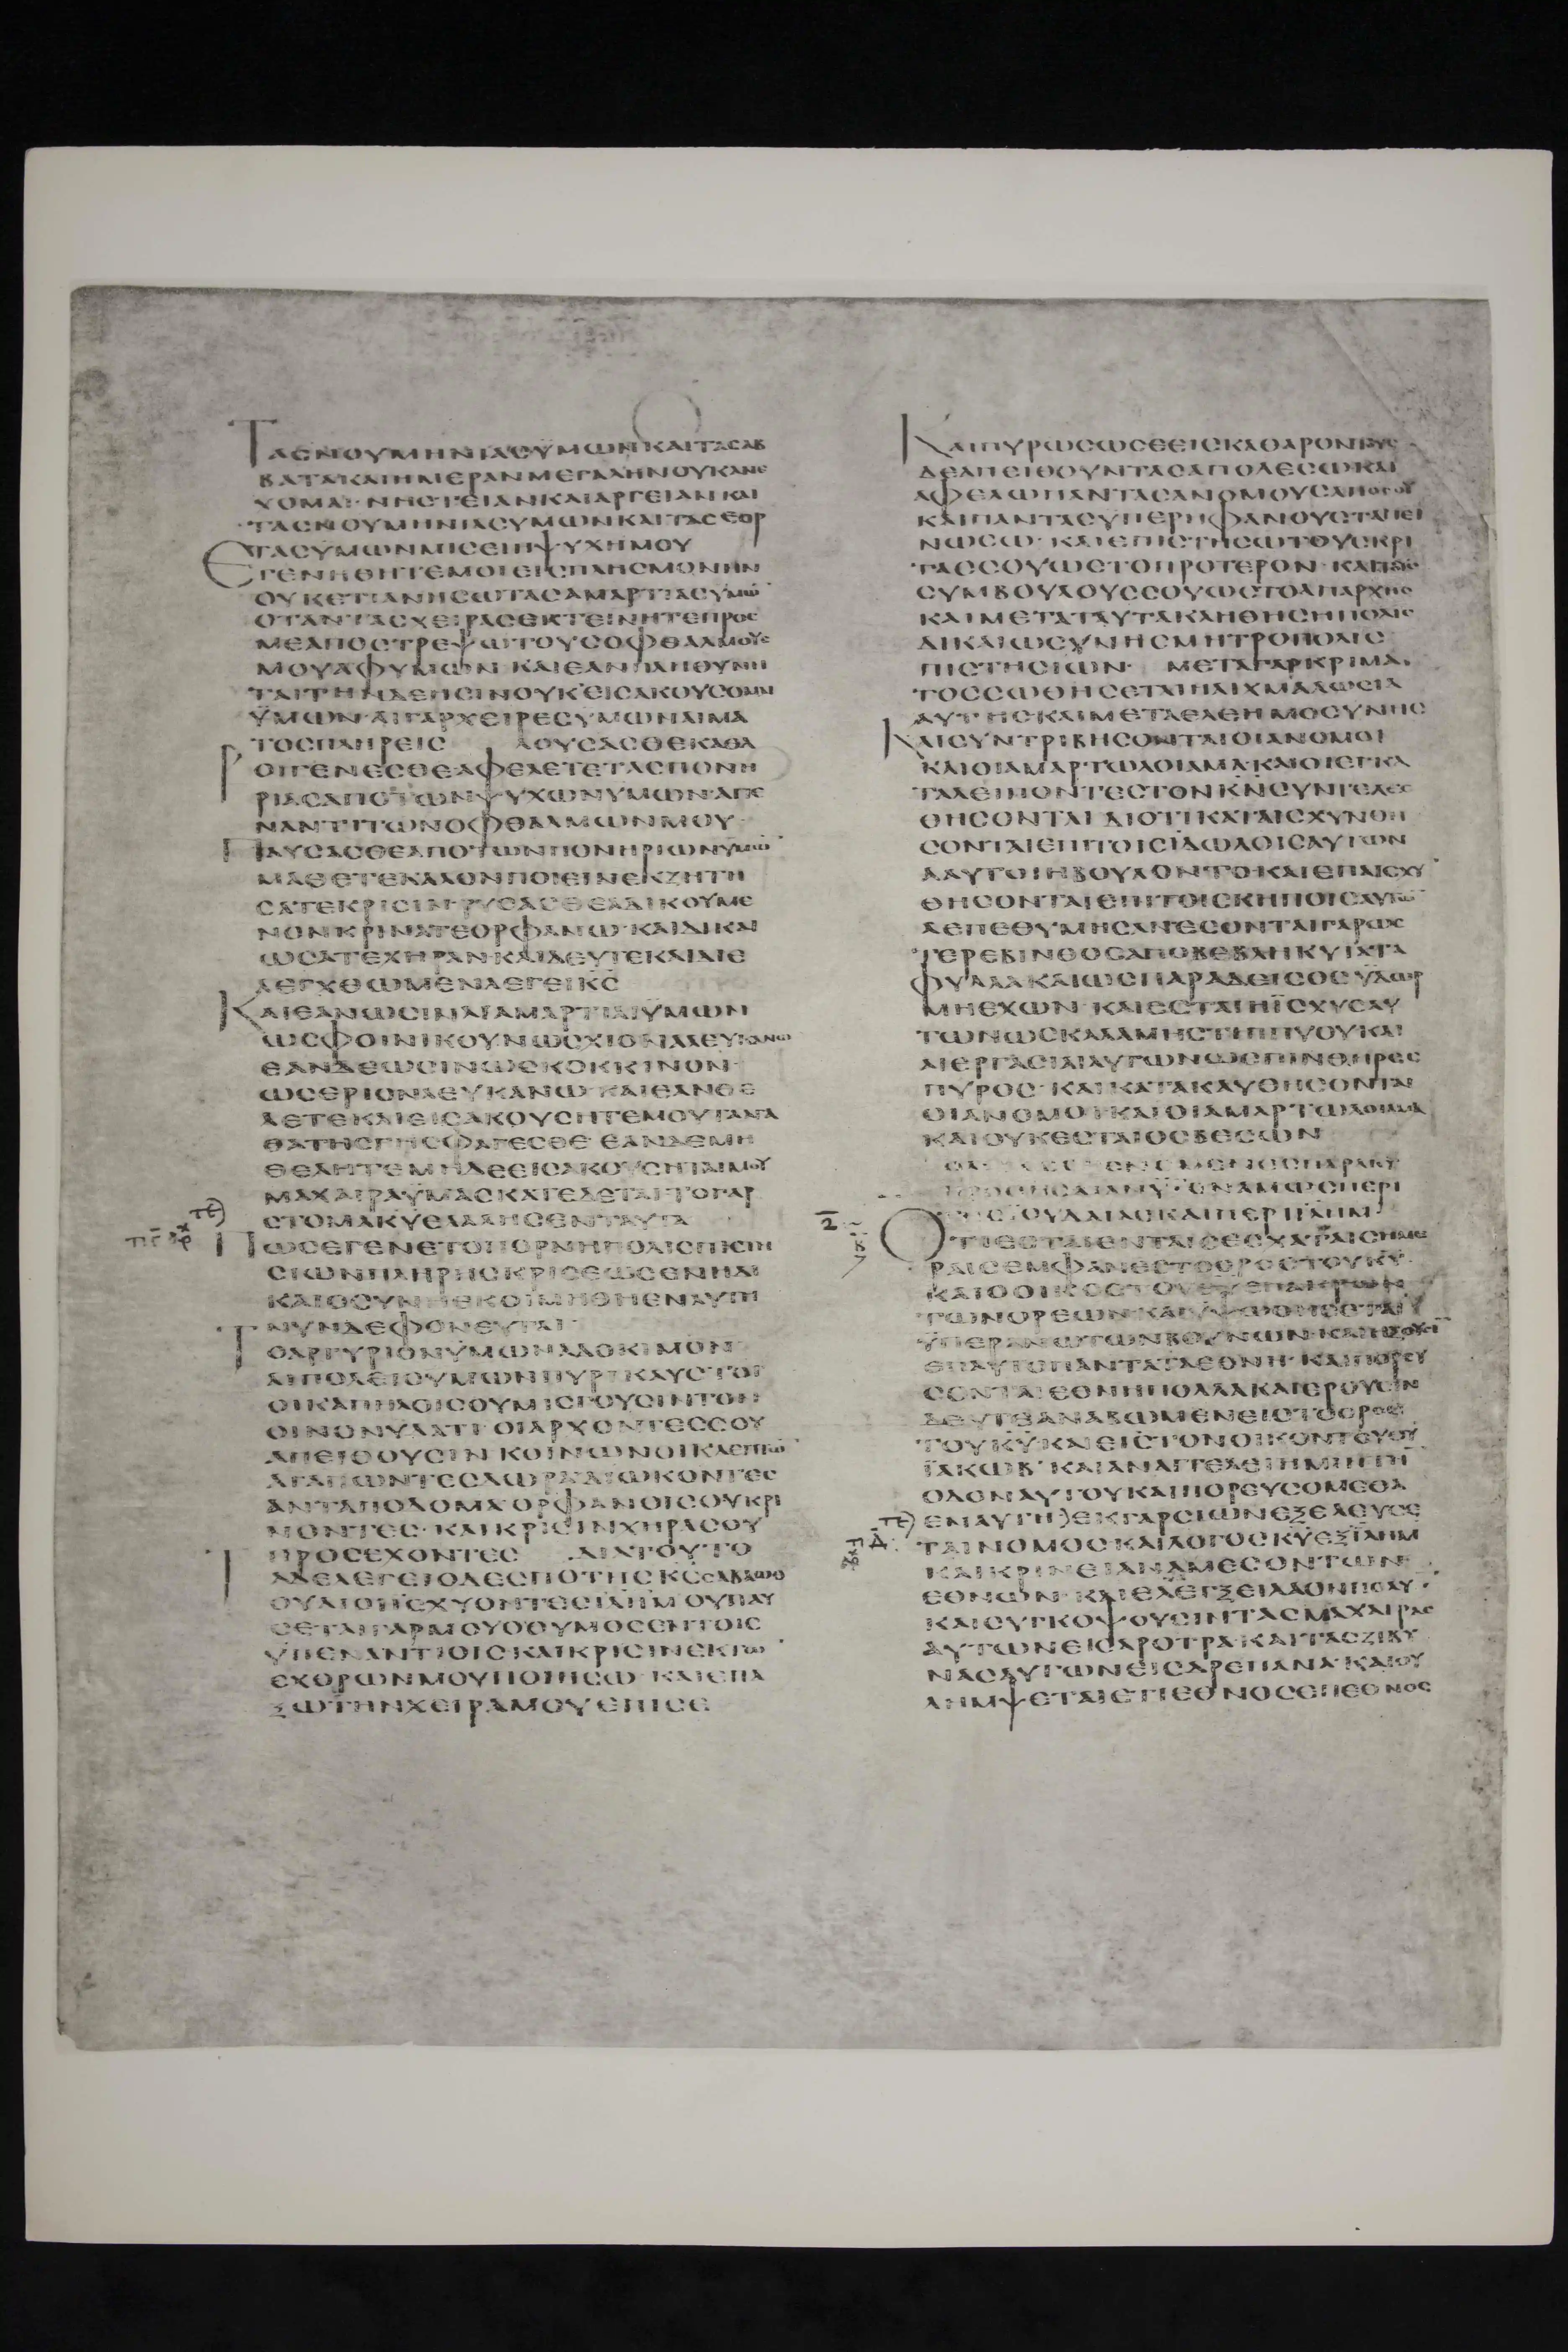 ΤΑΣΝΟΥΜΗΝΙΑΣΫΜΩΝΚΑΙΤΑΣΑΒ
ΒΑΤΑΚΑΙΗΜΕΡΑΝΜΕΓΑΛΗΝΟΥΚΑΝΕ
ΧΟΜΑΙ·ΝΗΣΤΕΙΑΝΚΑΙΑΡΓΕΙΑΝΚΑΙ
ΤΑΣΝΟΥΜΗΝΙΑΣΥΜΩΝΚΑΙΤΑΣΕΟΡ
ΤΑΣΥΜΩΝΜΙΣΕΙΗΨΥΧΗΜΟΥ
ΕΓΕΝΗΘΗΤΕΜΟΙΕΙΣΠΛΗΣΜΟΝΗΝ
ΟΥΚΕΤΙΑΝΗΣΩΤΑΣΑΜΑΡΤΙΑΣΥΜΩ̄
ΟΤΑΝΤΑΣΧΕΙΡΑΣΕΚΤΕΙΝΗΤΕΠΡΟΣ
ΜΕΑΠΟΣΤΡΕΨΩΤΟΥΣΟΦΘΑΛΜΟΥΣ
ΜΟΥΑΦΥΜΩΝ·ΚΑΙΕΑΝΠΛΗΘΥΝΗ
ΤΑΙΤΗΝΔΕΗΣΙΝΟΥΚΕΙΣΑΚΟΥΣΟΜΑΙ
ΫΜΩΝ·ΑΙΓΑΡΧΕΙΡΕΣΥΜΩΝΑΙΜΑ
ΤΟΣΠΛΗΡΕΙΣ ΛΟΥΣΑΣΘΕΚΑΘΑ
ΡΟΙΓΕΝΕΣΘΕΑΦΕΛΕΤΕΤΑΣΠΟΝΗ
ΡΙΑΣΑΠΟΤΩΝΨΥΧΩΝΥΜΩΝ·ΑΠΕ
ΝΑΝΤΙΤΩΝΟΦΘΑΛΜΩΝΜΟΥ·
ΠΑΥΣΑΣΘΕΑΠΟΤΩΝΠΟΝΗΡΙΩΝΥΜΩ̄
ΜΑΘΕΤΕΚΑΛΟΝΠΟΙΕΙΝΕΚΖΗΤΗ
ΣΑΤΕΚΡΙΣΙΝΡΥΣΑΣΘΕΑΔΙΚΟΥΜΕ
ΝΟΝΚΡΙΝΑΤΕΟΡΦΑΝΩ·ΚΑΙΔΙΚΑΙ
ΩΣΑΤΕΧΗΡΑΝ·ΚΑΙΔΕΥΤΕΚΑΙΔΙΕ
ΛΕΓΧΘΩΜΕΝΛΕΓΕΙΚ̄Σ̄
ΚΑΙΕΑΝΩΣΙΝΑΙΑΜΑΡΤΙΑΙΫΜΩΝ
ΩΣΦΟΙΝΙΚΟΥΝΩΣΧΙΟΝΑΛΕΥΚΑΝΩ
ΕΑΝΔΕΩΣΙΝΩΣΚΟΚΚΙΝΟΝ·
ΩΣΕΡΙΟΝΛΕΥΚΑΝΩ·ΚΑΙΕΑΝΘΕ
ΛΕΤΕΚΑΙΕΙΣΑΚΟΥΣΗΤΕΜΟΥΤΑΑΓΑ
ΘΑΤΗΣΓΗΣΦΑΓΕΣΘΕ·ΕΑΝΔΕΜΗ
ΘΕΛΗΤΕΜΗΔΕΕΙΣΑΚΟΥΣΗΤΑΙΜΟΥ
ΜΑΧΑΙΡΑΫΜΑΣΚΑΤΕΔΕΤΑΙ·ΤΟΓΑΡ
ΣΤΟΜΑΚ̄ῩΕΛΑΛΗΣΕΝΤΑΥΤΑ
ΠΩΣΕΓΕΝΕΤΟΠΟΡΝΗΠΟΛΙΣΠΙΣΤΗ
ΣΙΩΝΠΛΗΡΗΣΚΡΙΣΕΩΣΕΝΗΔΙ
ΚΑΙΟΣΥΝΗΕΚΟΙΜΗΘΗΕΝΑΥΤΗ
ΝΥΝΔΕΦΟΝΕΥΤΑΙ·
ΤΟΑΡΓΥΡΙΟΝΫΜΩΝΑΔΟΚΙΜΟΝ
ΟΙΚΑΠΗΛΟΙΣΟΥΜΙΣΓΟΥΣΙΝΤΟΝ
ΟΙΝΟΝΥΔΑΤΙ·ΟΙΑΡΧΟΝΤΕΣΣΟΥ
ΑΠΕΙΘΟΥΣΙΝ·ΚΟΙΝΩΝΟΙΚΛΕΠΤΩ̄
ΑΓΑΠΩΝΤΕΣΔΩΡΑΔΙΩΚΟΝΤΕΣ
ΑΝΤΑΠΟΔΟΜΑ·ΟΡΦΑΝΟΙΣΟΥΚΡΙ
ΝΟΝΤΕΣ·ΚΑΙΚΡΙΣΙΝΧΗΡΑΣΟΥ
ΠΡΟΣΕΧΟΝΤΕΣ ΔΙΑΤΟΥΤΟ
ΤΑΔΕΛΕΓΕΙΟΔΕΣΠΟΤΗΣΚ̄Σ̄ΣΑΒΑΩΘ
ΟΥΑΙΟΙΙΣΧΥΟΝΤΕΣῙΛ̄Η̄Μ̄ΟΥΠΑΥ
ΣΕΤΑΙΓΑΡΜΟΥΟΘΥΜΟΣΕΝΤΟΙΣ
ΫΠΕΝΑΝΤΙΟΙΣΚΑΙΚΡΙΣΙΝΕΚΤΩ̄
ΕΧΘΡΩΝΜΟΥΠΟΙΗΣΩ·ΚΑΙΕΠΑ
ΞΩΤΗΝΧΕΙΡΑΜΟΥΕΠΙΣΕ
ΚΑΙΠΥΡΩΣΩΣΕΕΙΣΚΑΘΑΡΟΝ
ΔΕΑΠΕΙΘΟΥΝΤΑΣΑΠΟΛΕΣΩΚΑΙ
ΑΦΕΛΩΠΑΝΤΑΣΑΝΟΜΟΥΣΑΠΟΣΟΥ
ΚΑΙΠΑΝΤΑΣΥΠΕΡΗΦΑΝΟΥΣΤΑΠΕΙ
ΝΩΣΩ·ΚΑΙΕΠΙΣΤΗΣΩΤΟΥΣΚΡΙ
ΤΑΣΣΟΥΩΣΤΟΠΡΟΤΕΡΟΝ·ΚΑΙΤΟΥΣ
ΣΥΜΒΟΥΛΟΥΣΣΟΥΩΣΤΟΑΠΑΡΧΗΣ
ΚΑΙΜΕΤΑΤΑΥΤΑΚΛΗΘΗΣΗΠΟΛΙΣ
ΔΙΚΑΙΩΣΥΝΗΣΜΗΤΡΟΠΟΛΙΣ
ΠΙΣΤΗΣΙΩΝ· ΜΕΤΑΓΑΡΚΡΙΜΑ
ΤΟΣΣΩΘΗΣΕΤΑΙΗΑΙΧΜΑΛΩΣΙΑ
ΑΥΤΗΣΚΑΙΜΕΤΑΕΛΕΗΜΟΣΥΝΗΣ
ΚΑΙΣΥΝΤΡΙΒΗΣΟΝΤΑΙΟΙΑΝΟΜΟΙ
ΚΑΙΟΙΑΜΑΡΤΩΛΟΙΑΜΑ·ΚΑΙΟΙΕΓΚΑ
ΤΑΛΕΙΠΟΝΤΕΣΤΟΝΚ̄Ν̄ΣΥΝΤΕΛΕΣ
ΘΗΣΟΝΤΑΙ ΔΙΟΤΙΚΑΤΑΙΣΧΥΝΘΗ
ΣΟΝΤΑΙΕΠΙΤΟΙΣΙΔΩΛΟΙΣΑΥΤΩΝ
ΑΑΥΤΟΙΗΒΟΥΛΟΝΤΟ·ΚΑΙΕΠΑΙΣΧῩ
ΘΗΣΟΝΤΑΙΕΠΙΤΟΙΣΚΗΠΟΙΣΑΥΤΩ̄
ΑΕΠΕΘΥΜΗΣΑΝΕΣΟΝΤΑΙΓΑΡΩΣ
ΤΕΡΕΒΙΝΘΟΣΑΠΟΒΕΒΛΗΚΥΪΑΤΑ
ΦΥΛΛΑΚΑΙΩΣΠΑΡΑΔΕΙΣΟΣΥΔΩΡ
ΜΗΕΧΩΝ·ΚΑΙΕΣΤΑΙΗΪΣΧΥΣΑΥ
ΤΩΝΩΣΚΑΛΑΜΗΣΤΙΠΠΥΟΥΚΑΙ
ΑΙΕΡΓΑΣΙΑΙΑΥΤΩΝΩΣΣΠΙΝΘΗΡΕΣ
ΠΥΡΟΣ·ΚΑΙΚΑΤΑΚΑΥΘΗΣΟΝΤΑΙ
ΟΙΑΝΟΜΟΙΚΑΙΟΙΑΜΑΡΤΩΛΟΙΑΜΑ
ΚΑΙΟΥΚΕΣΤΑΙΟΣΒΕΣΩΝ
ΟΤΙΕΣΤΑΙΕΝΤΑΙΣΕΣΧΑΤΑΙΣΗΜΕ
ΡΑΙΣΕΜΦΑΝΕΣΤΟΟΡΟΣΤΟΥΚ̄Ῡ
ΚΑΙΟΟΙΚΟΣΤΟΥΘ̄ῩΕΠΑΚΡΩΝ
ΤΩΝΟΡΕΩΝ·ΚΑΙΥΨΩΘΗΣΕΤΑΙ
ΫΠΕΡΑΝΩΤΩΝΒΟΥΝΩΝ·ΚΑΙΗΞΟΥΣΙ
ΕΠΑΥΤΟΠΑΝΤΑΤΑΕΘΝΗ·ΚΑΙΠΟΡΕΥ
ΣΟΝΤΑΙΕΘΝΗΠΟΛΛΑΚΑΙΕΡΟΥΣΙΝ
ΔΕΥΤΕΑΝΑΒΩΜΕΝΕΙΣΤΟΟΡΟΣ
ΤΟΥΚ̄ῩΚΑΙΕΙΣΤΟΝΟΙΚΟΝΤΟΥΘ̄Ῡ
ΪΑΚΩΒ·ΚΑΙΑΝΑΓΓΕΛΕΙΗΜΙΝΤΗ̄
ΟΔΟΝΑΥΤΟΥΚΑΙΠΟΡΕΥΣΟΜΕΘΑ
ΕΝΑΥΤΗ)ΕΚΓΑΡΣΙΩΝΕΞΕΛΕΥΣΕ
ΤΑΙΝΟΜΟΣΚΑΙΛΟΓΟΣΚ̄ῩΕΞΪ̄Λ̄Η̄Μ̄
ΚΑΙΚΡΙΝΕΙΑΝΑΜΕΣΟΝΤΩΝ
ΕΘΝΩΝ·ΚΑΙΕΛΕΓΞΕΙΛΑΟΝΠΟΛΥ·
ΚΑΙΣΥΓΚΟΨΟΥΣΙΝΤΑΣΜΑΧΑΙΡΑΣ
ΑΥΤΩΝΕΙΣΑΡΟΤΡΑ·ΚΑΙΤΑΣΖΙΒΥ
ΝΑΣΑΥΤΩΝΕΙΣΔΡΕΠΑΝΑ·ΚΑΙΟΥ
ΛΗΜΨΕΤΑΙΕΤΙΕΘΝΟΣΕΠΕΘΝΟΣ